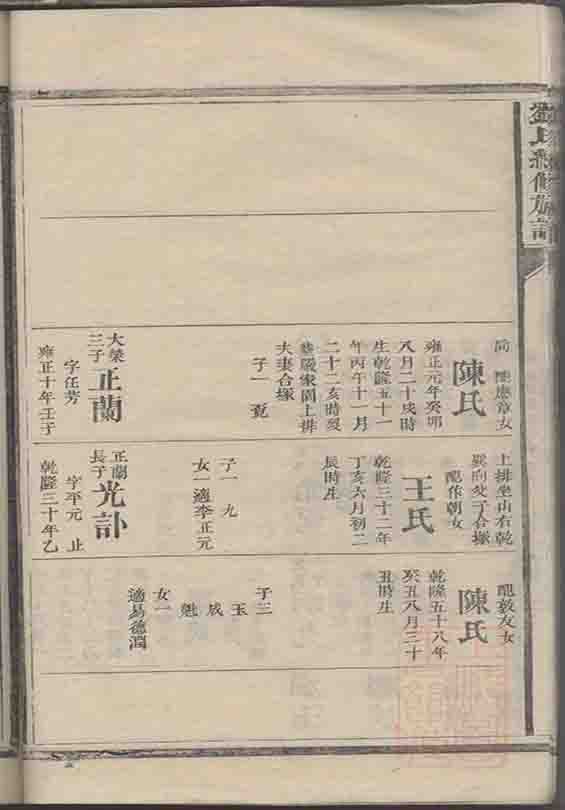 劉氏續修族譜
配應章女
陳氏
雍正元年癸卯
八月二十戌時
生乾隆五十一
年丙午十一月
二十二亥時歿
葬嚴家園上排
夫妻合塚
子一 寬
大榮
三子
正蘭
字任芳
雍正十年壬子
上排坐山右乾
巽向父子合塚
配作朝女
王氏
乾隆三十二年
丁亥六月初二
辰時生
子一 九
女一適李正元
正蘭
長子
光訃
字平元 止
乾隆三十年乙
配敦友女
陳氏
乾隆五十八年
癸丑八月三十
丑時生
子三
玉
成
魁
女一
適易德潤